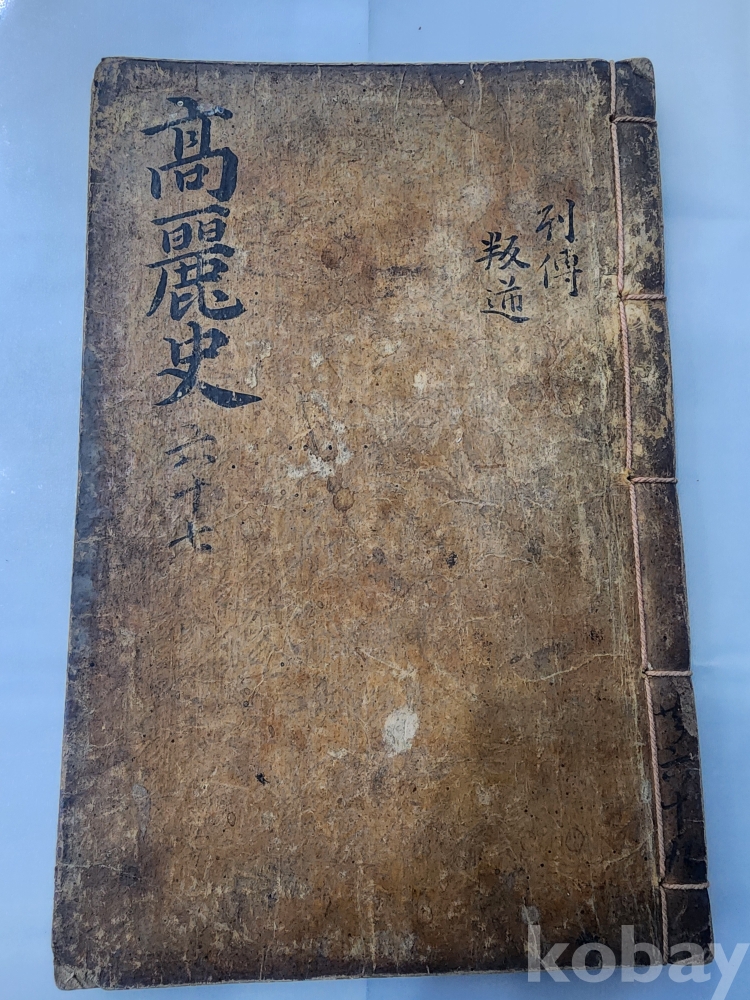 列傳
叛逆
高麗史 六十七
kobay